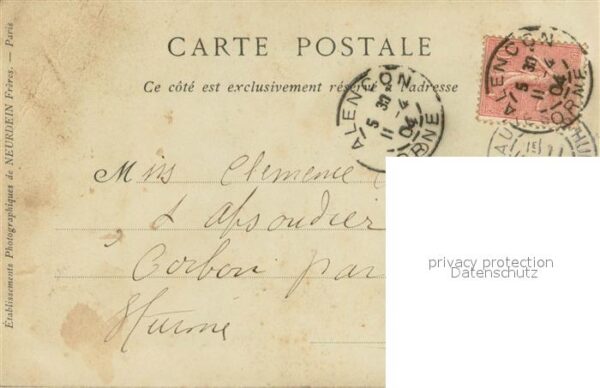 CARTE POSTALE
Ce côté est exclusivement réservé à l'adresse
Établissements Photographiques de NEURDEIN Frères. — Paris
ALENÇON
5 30
11 -4
04
ORNE
ALENÇON
5 30
11 -4
04
ORNE
Miss Clémence
Corbon par
privacy protection
Datenschutz